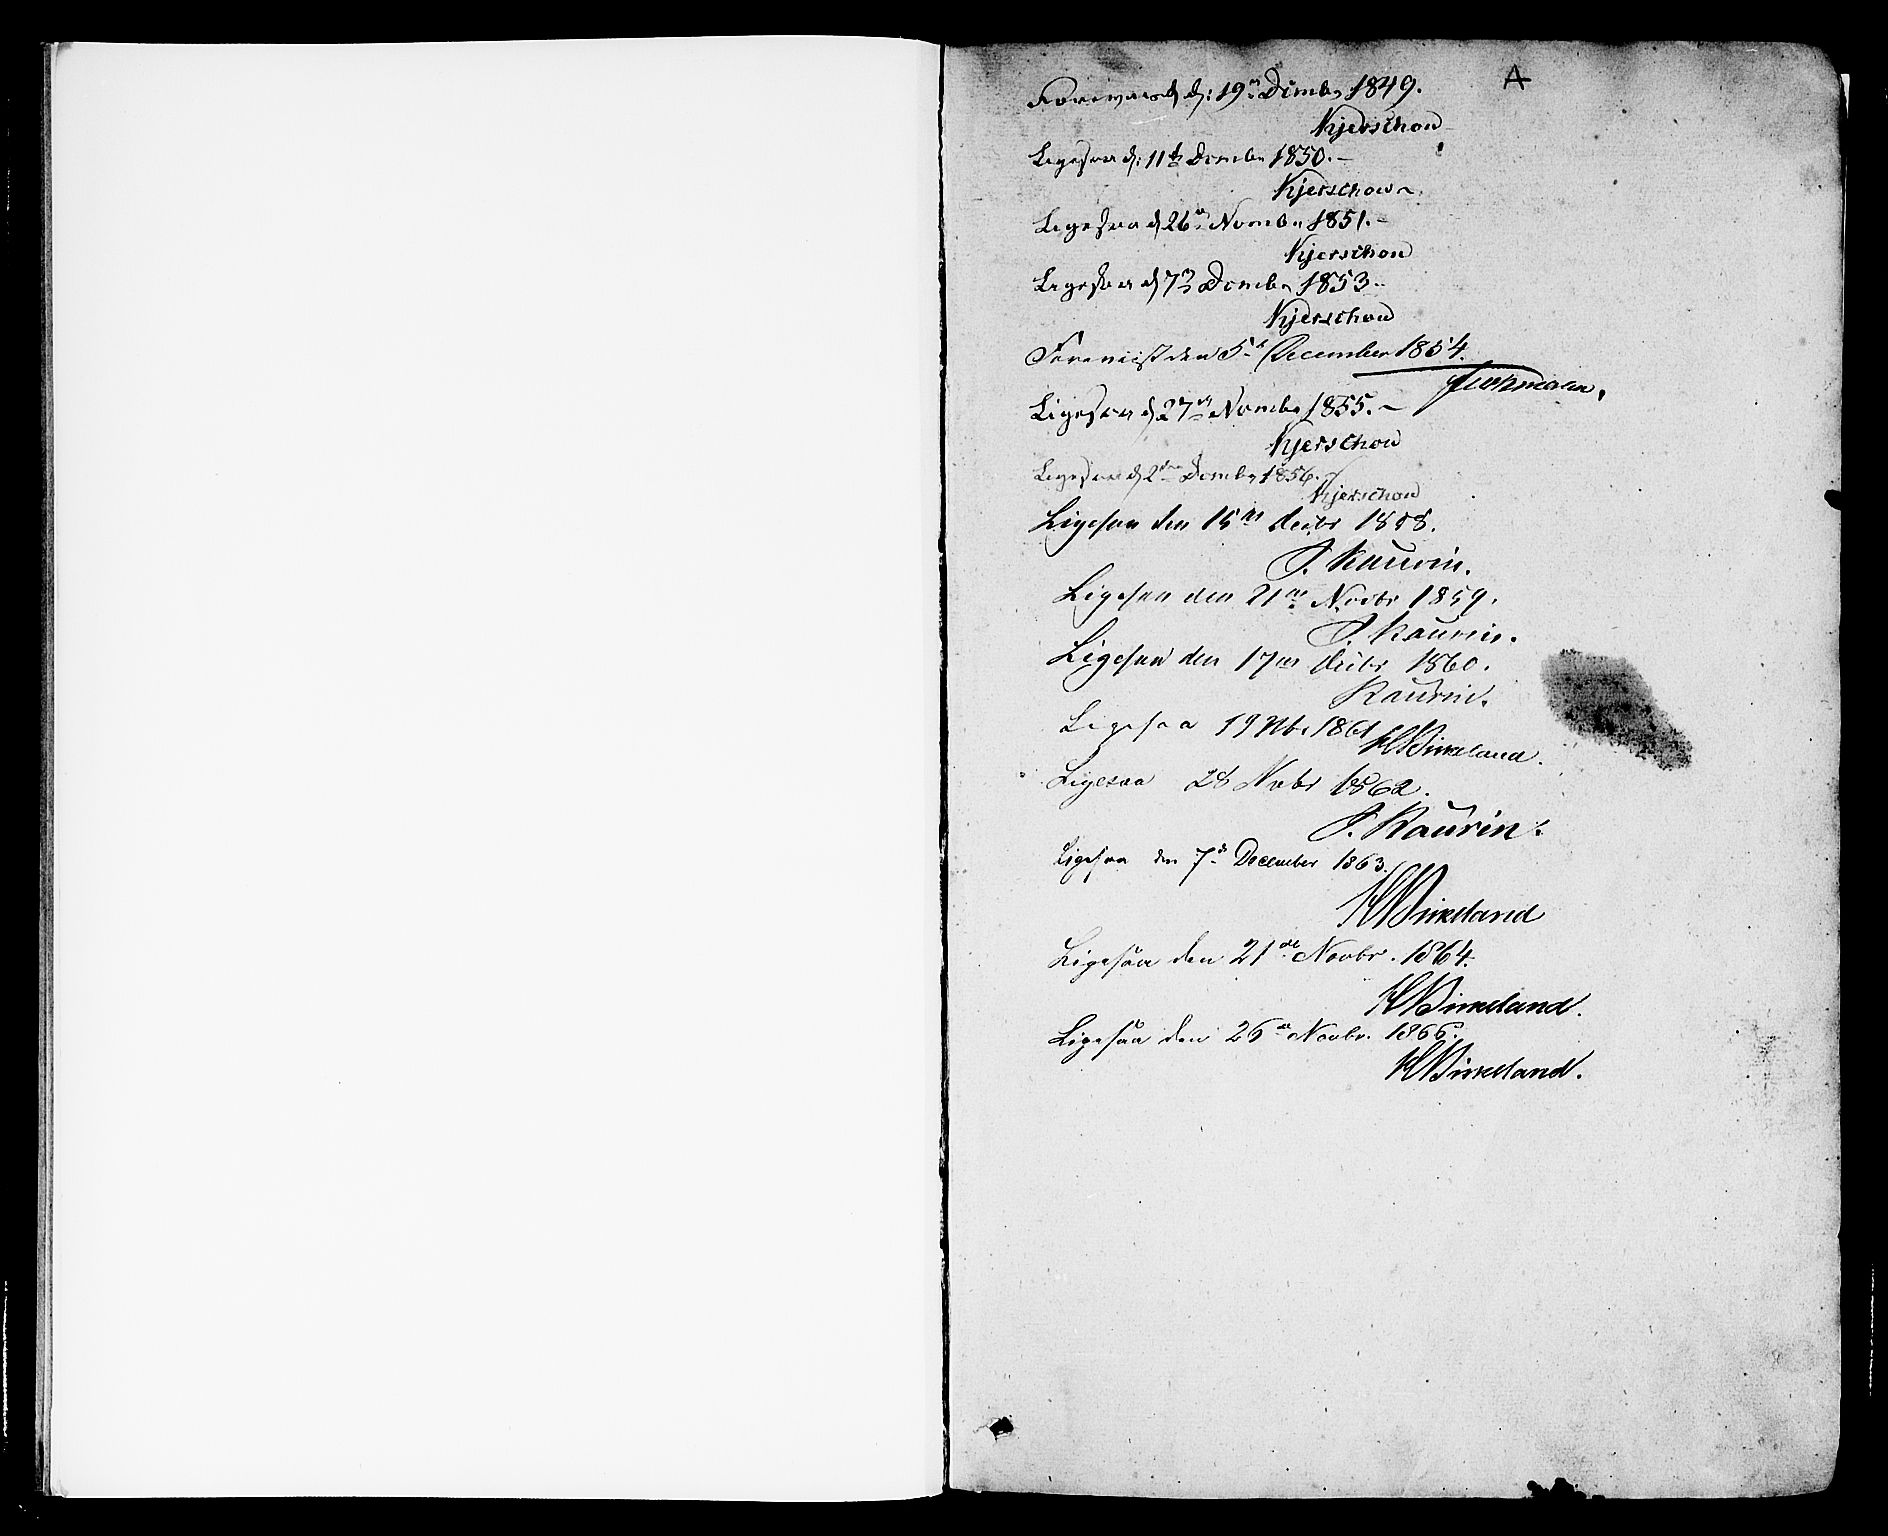 A
Foreviist d: 19de Decembr 1849.
Kjerschow
Ligesaa d: 11te Decembr 1850.
Kjerschow
Ligesaa d 26de Novembr 1851.
Kjerschow
Ligesaa d 7de Decembr 1853.
Kjerschow
Foreviist den 5te December 1854.
Ligesaa d 27de Novembr 1855.
Kjerschow
Ligesaa d 2den Decembr 1856.
Kjerschow
Ligesaa den 15de Decbr 1858.
J. Kaurin.
Ligesaa den 21de Novbr 1859.
J. Kaurin.
Ligesaa den 17de Decbr 1860.
Kaurin.
Ligesaa 19 Nbr 1861
HBirkeland.
Ligesaa 28 Novbr 1862.
J. Kaurin.
Ligesaa den 7de December 1863.
HBirkeland
Ligesaa den 21de Novbr. 1864.
HBirkeland.
Ligesaa den 26de Novbr. 1866.
HBirkeland.